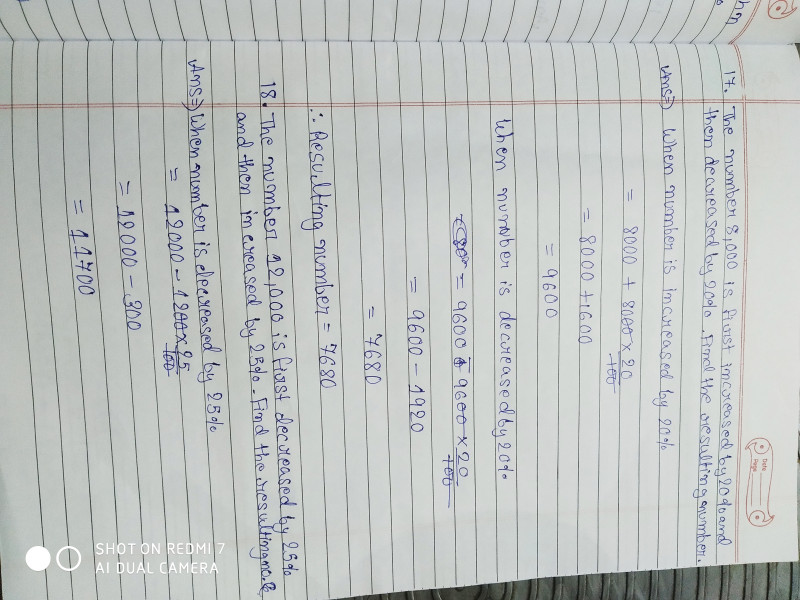 Date
Page
17. The number 8,000 is first increased by 20% and
then decreased by 20%. Find the resulting number.
Ans⇒ When number is increased by 20%
= 8000 + 8000 × 20/100
= 8000 + 1600
= 9600
When number is decreased by 20%
= 9600 - 9600 × 20/100
= 9600 - 1920
= 7680
∴ Resulting number = 7680
18. The number 12,000 is first decreased by 25%
and then increased by 25%. Find the resulting no.
Ans⇒ When number is decreased by 25%
= 12000 - 1200 × 25/100
= 12000 - 300
= 11700
SHOT ON REDMI 7
AI DUAL CAMERA